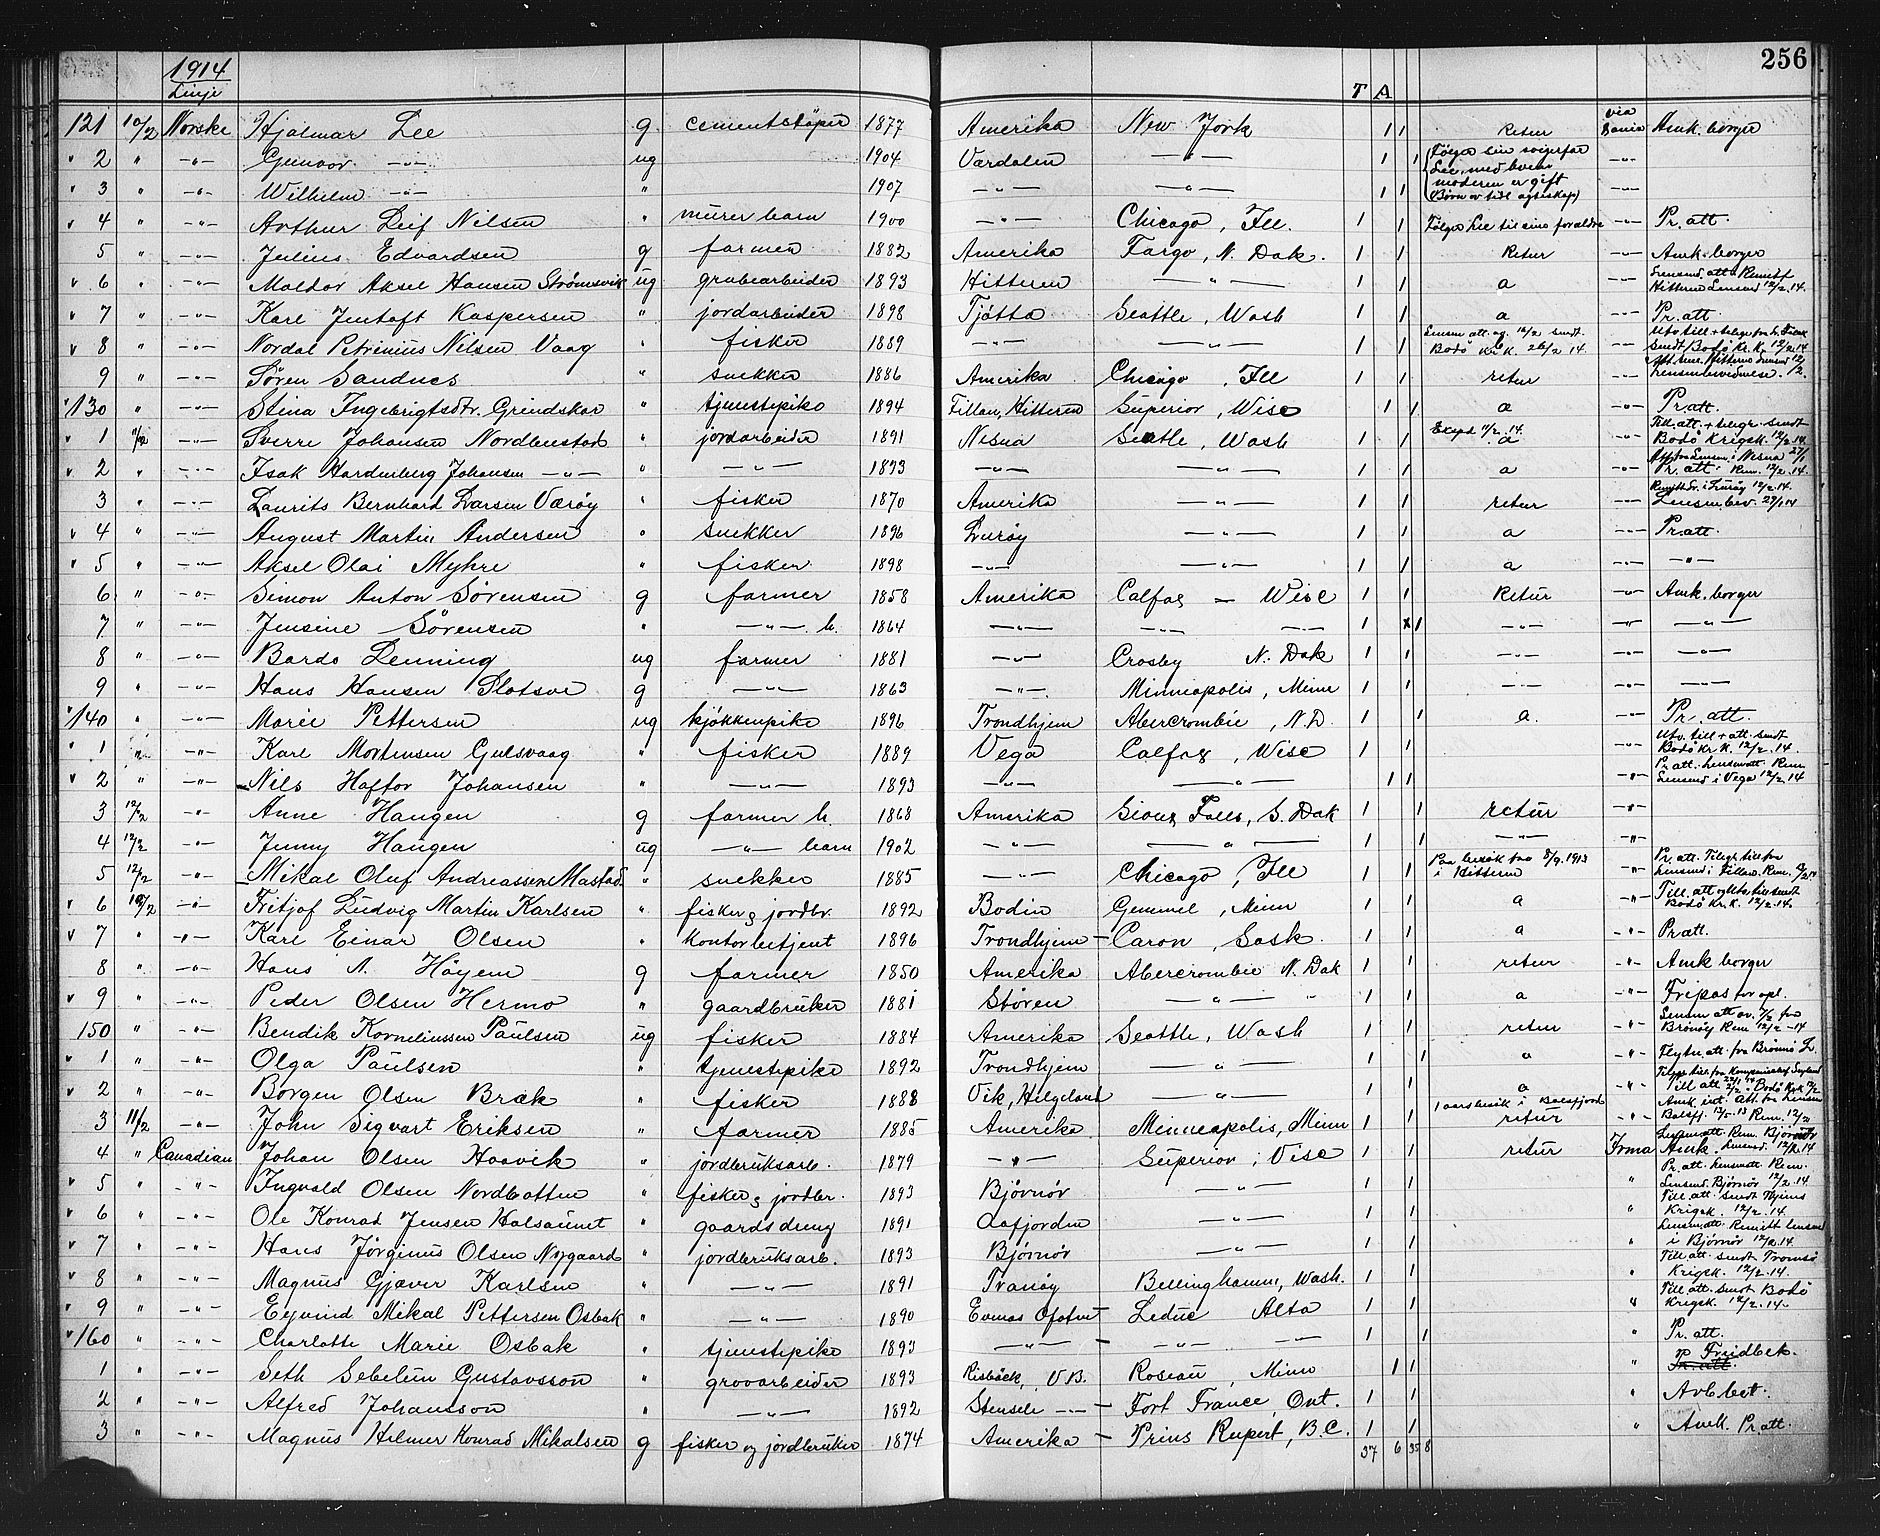 1914 256
Linje T A
121 10/2 Norske Hjalmar Lee g cementstøper 1877 Amerika New York 1 1 retur via Dania Amk. borger
v 2 " -"- Gunvor -"- ug 1904 Værdalen -"- 1 1 Følger sin svigerfar
Lee, med hvem
v 3 " -"- Wilhelm -"- " 1907 -"- -"- 1 1 moderen er gift
v 4 " -"- Arthur Leif Nilsen " murer barn 1900 -"- Chicago, Ill. 1 1 Følger Lee til sine forældre -"- Pr. att.
5 " -"- Julius Edvardsen g farmer 1882 Amerika Fargo, N. Dak. 1 1 Retur -"- Amk. borger
v 6 " -"- Moldor Aksel Hansen Strømsvik ug grubearbeider 1893 Hitteren -"- 1 1 a -"- Hitteren Lensmd 12/2.14.
v 7 " -"- Karl Jentoft Kaspersen " jordarbeider 1898 Tjøtta Seattle, Wash 1 1 a -"- Pr. att.
v 8 " -"- Nordal Petrinius Nilsen Vaag " fisker 1889 -"- -"- 1 1 Bodø Kr.K. 26/2 14. -"- smdt Bodø Kr. K. 12/2.14
9 " -"- Søren Sandnes " snekker 1886 Amerika Chicago, Ill 1 1 retur -"-
v 130 " -"- Stina Ingebrigtsdtr. Grindskar " tjenestepike 1894 Fillan, Hitteren Superior, Wisc 1 1 a -"- Pr. att.
v 1 11/2 -"- Sverre Johansen Nordbustad " jordarbeider 1891 Nesna Seatle, Wash 1 1 a -"- Bodø Krigsk. 12/2.14
v 2 " -"- Isak Hardenberg Johansen -"- " -"- 1893 -"- -"- 1 1 a -"- Pr. att. Rem. 12/2.14.
3 " -"- Laurits Bernhard Larsen Værøy " fisker 1870 Amerika -"- 1 1 retur -"- Lensm. bev. 29/1 14
v 4 " -"- August Martin Andersen " snekker 1896 Lurøy -"- 1 1 a -"- Pr. att.
v 5 " -"- Aksel Olai Myhre " fisker 1898 -"- -"- 1 1 a -"- -"-
6 " -"- Simon Anton Sørensen g farmer 1858 Amerika Calfax - Wisc 1 1 Retur -"- Amk. borger
7 " -"- Jensine Sørensen " -"- h. 1864 -"- -"- -"- 1 x 1 -"- -"- -"-
8 " -"- Bardo Lenning ug farmer 1881 -"- Crosby N. Dak 1 1 -"- -"- -"-
9 " -"- Hans Hansen Slotsve g -"- 1863 -"- Minneapolis, Minn 1 1 -"- -"- -"-
v 140 " -"- Marie Pettersen ug kjøkkenpike 1896 Trondhjem Abercrombie, N.D. 1 1 a. -"- Pr. att.
v 1 " -"- Karl Mortensen Gulsvaag " fisker 1889 Vega Calfax, Wisc 1 1 Utv. till + att. smdt
Bodø kr. K. 12/2.14.
v 2 " -"- Nils Haftor Johansen " -"- 1893 -"- -"- 1 1 -"- Lensmd i Vega 12/2.14
3 12/2 -"- Anne Haugen g farmer h. 1868 Amerika Sioux Falls, S. Dak 1 1 retur -"-
4 12/2 -"- Jenny Haugen ug -"- barn 1902 -"- -"- 1 1 -"- -"-
5 12/2 -"- Mikal Oluf Andreassen Mastad " snekker 1885 -"- Chicago, Ill 1 1 Paa besøk fra 8/9.1913
i Hitteren -"-
v 6 10/2 -"- Fritjof Ludvig Martin Karlsen " fisker & jordbr. 1892 Bodin Gemmel, Minn 1 1 a -"- Bodø Kr. K. 12/2.14.
v 7 " -"- Karl Einar Olsen " kontorbetjent 1896 Trondhjem - Caron, Sask. 1 1 a -"- Pr att.
8 " -"- Hans N. Høyem g farmer 1850 Amerika Abercrombie N. Dak 1 1 retur -"- Amk borger
v 9 " -"- Peder Olsen Hermo " gaardbruker 1881 Støren -"- " 1 1 a -"- Fripas for opl.
150 " -"- Bendik Korneliussen Paulsen ug fisker 1884 Amerika Seattle, Wash 1 1 retur -"- Brønøy Rem 12/2-14
v 1 " -"- Olga Paulsen " tjenestepike 1892 Trondhjem -"- 1 1 a -"- Flytn. att. fra Brønnø
v 2 " -"- Borgen Olsen Bræk " fisker 1888 Vik, Helgeland -"- 1 1 a -"-
1 aars besøk i Balsfjord
3 11/2 -"- John Sigvart Eriksen " farmer 1885 Amerika Minneapolis, Minn 1 1 retur -"-
4 " Canadian Johan Olsen Haavik " jordbruksarb. 1879 -"- Superior, Visc 1 1 retur Irma
v 5 " -"- Ingvald Olsen Nordbotten " fisker & jordbr. 1893 Bjørnør -"- 1 1 " Lensmd. Bjørnør 12/2.14
v 6 " -"- Ole Konrad Jensen Halsaunet " gaardsdreng 1891 Aafjorden -"- 1 1 " Krigsk. 12/2.14.
v 7 " -"- Hans Jørginus Olsen Nygaard " jordbruksarb. 1893 Bjørnør -"- 1 1 " i Bjørnør 12/2.14.
v 8 " -"- Magnus Gjæver Karlsen " -"- 1891 Tranøy Bellinghamn, Wash. 1 1 " Till att. smdt Tromsø
Krigsk. 12/2.14.
v 9 " -"- Eyvind Mikal Pettersen Osbak " -"- 1890 Evenes Ofoten Leduc Alta 1 1 " Till att. smdt Bodø
Krigsk. 12/2.14.
v 160 " -"- Charlotte Marie Osbak " tjenestepike 1893 -"- - -"- -"- 1 1 " Pr. att.
1 " -"- Seth Sebelein Gustavsson " grovarbeider 1893 Risbäck, V.B. Roseau, Minn 1 1 "
2 " -"- Alfred Johansson " -"- 1892 Stensele -"- - Fort France, Ont. 1 1 " Arb. bet.
3 " -"- Magnus Helmer Konrad Mikalsen g fisker og jordbruker 1874 Amerika - Prins Rupert, B.C. 1 1 " Amk. Pr. att.
37 6 35 8